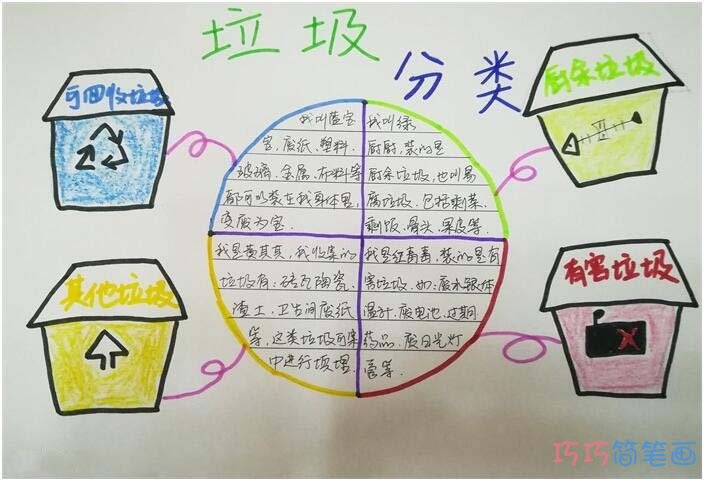 垃圾
分类
可回收垃圾
厨余垃圾
我叫蓝宝
宝，废纸、塑料、
玻璃、金属、布料等
都可以装在我身体里，
变废为宝。
我叫绿
厨厨，装的是
厨余垃圾，也叫易
腐垃圾，包括剩菜、
剩饭、骨头、果皮等。
其他垃圾
有害垃圾
我是黄其其，我收集的
垃圾有：砖瓦陶瓷、
渣土、卫生间废纸
等，这类垃圾可集
中进行填埋。
我是红青青，装的是有
害垃圾，如：废水银体
温计、废电池、过期
药品、废日光灯
管等。
巧巧简笔画